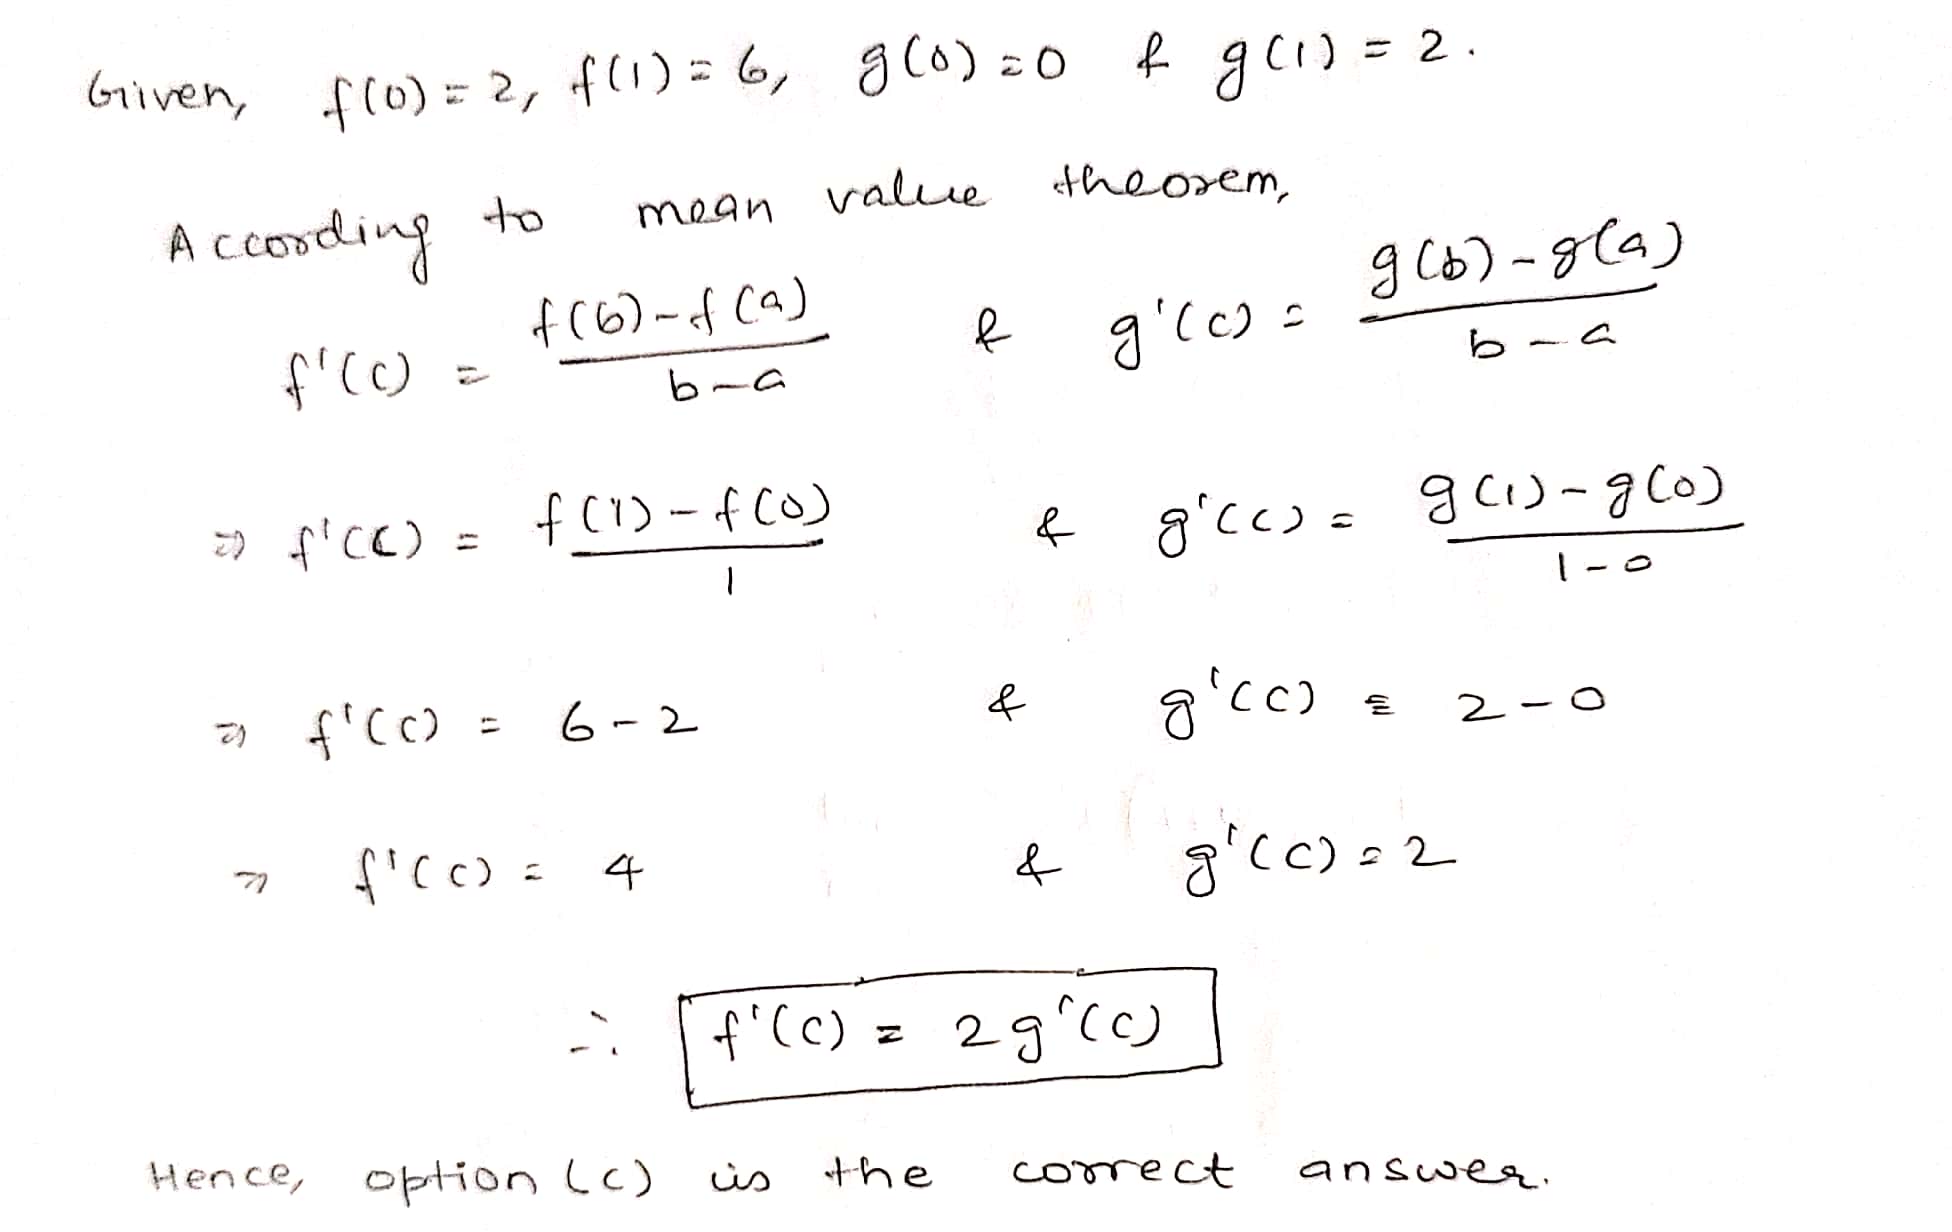 Given, f(0) = 2, f(1) = 6, g(0) = 0 & g(1) = 2.
According to mean value theorem,
f'(c) = f(b) - f(a) / b - a & g'(c) = g(b) - g(a) / b - a
⇒ f'(c) = f(1) - f(0) / 1 & g'(c) = g(1) - g(0) / 1 - 0
⇒ f'(c) = 6 - 2 & g'(c) = 2 - 0
⇒ f'(c) = 4 & g'(c) = 2
∴ f'(c) = 2g'(c)
Hence, option (c) is the correct answer.